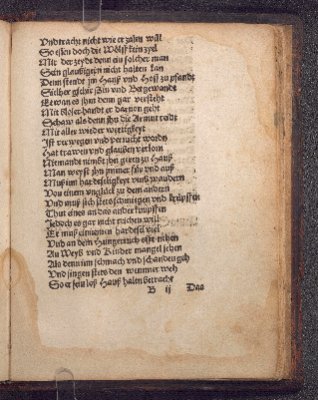 Vnd tracht nicht wie er zalen wöll
So essen doch die Wölff kein zyel
Mit der zeydt denn ein solcher man
Sein glaubigern nicht halten kan
Denn stende jm Hauß vnd Hoff zu pfandt
Silber gschir Zin vnd Betgewandt
Etwan es jhm denn gar versteht
Mit bloser handt er daruon geht
Schaw als denn jhn die Armut
Mit aller wieder wertigkeyt
Ist verwegen vnd veracht worden
Hat trawen vnd glauben verlorn
Niemandt nimbt jhn gern zu Hauß
Man weyst jhn jmmer für vnd auß
Muß jnn hardseligkeyt wandern
Von einem vnglück zu dem andern
Vnd muß sich stets schmiegen vnd
Thut eines an das ander knüpffen
Jedoch es gar nicht reichen will
Er muß einnemen hardsel viel
Vnd an dem Hungertuch offt nehen
An Weyb vnd Kinder mangel sehen
Als denn jm schmach vnd schanden geh
Vnd singen stets den wemmer weh
So er sein loß Hauß halen betracht
B ij Das